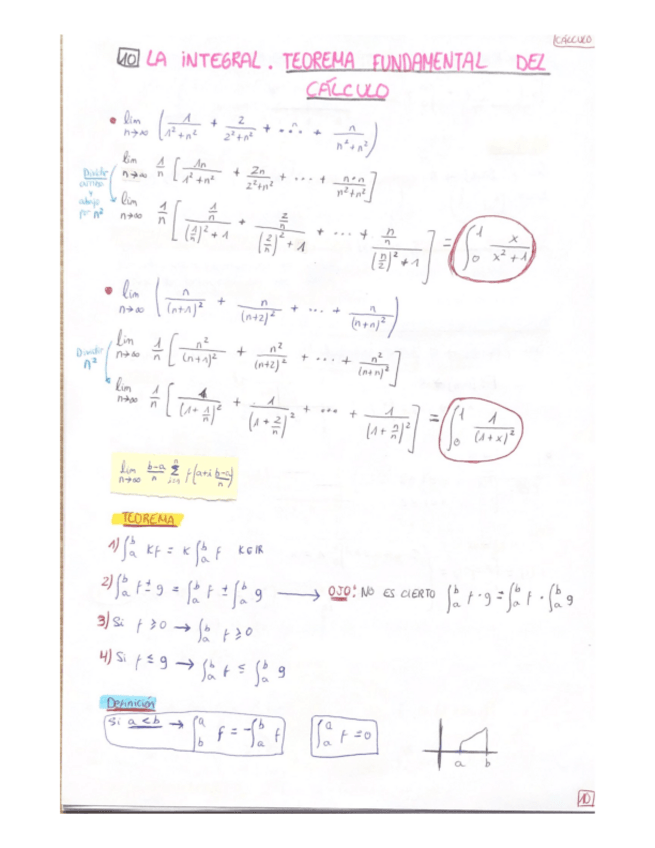 CÁLCULO
10 LA INTEGRAL. TEOREMA FUNDAMENTAL DEL
CÁLCULO
• lim n→∞ (1/(1²+n²) + 2/(2²+n²) + ... + n/(n²+n²))
lim n→∞ 1/n [1n/(1²+n²) + 2n/(2²+n²) + ... + n·n/(n²+n²)]
Dividir
arriba
y
abajo
por n²
lim n→∞ 1/n [(1/n)/((1/n)²+1) + (2/n)/((2/n)²+1) + ... + (n/n)/((n/2)²+1)] = ∫₀¹ x/(x²+1)
• lim n→∞ (n/(n+1)² + n/(n+2)² + ... + n/(n+n)²)
Dividir
n²
lim n→∞ 1/n [n²/(n+1)² + n²/(n+2)² + ... + n²/(n+n)²]
lim n→∞ 1/n [1/(1+1/n)² + 1/(1+2/n)² + ... + 1/(1+n/n)²] = ∫₀¹ 1/(1+x)²
lim n→∞ (b-a)/n Σ_{i=1}^{n} f(a+i (b-a)/n)
TEOREMA
1) ∫ₐᵇ Kf = K ∫ₐᵇ f K∈IR
2) ∫ₐᵇ f ± g = ∫ₐᵇ f ± ∫ₐᵇ g → OJO! NO ES CIERTO ∫ₐᵇ f·g = ∫ₐᵇ f · ∫ₐᵇ g
3) Si f ≥ 0 → ∫ₐᵇ f ≥ 0
4) Si f ≤ g → ∫ₐᵇ f ≤ ∫ₐᵇ g
Definición
Si a < b → ∫_b^a f = -∫_a^b f ∫_a^a f = 0
a b
10